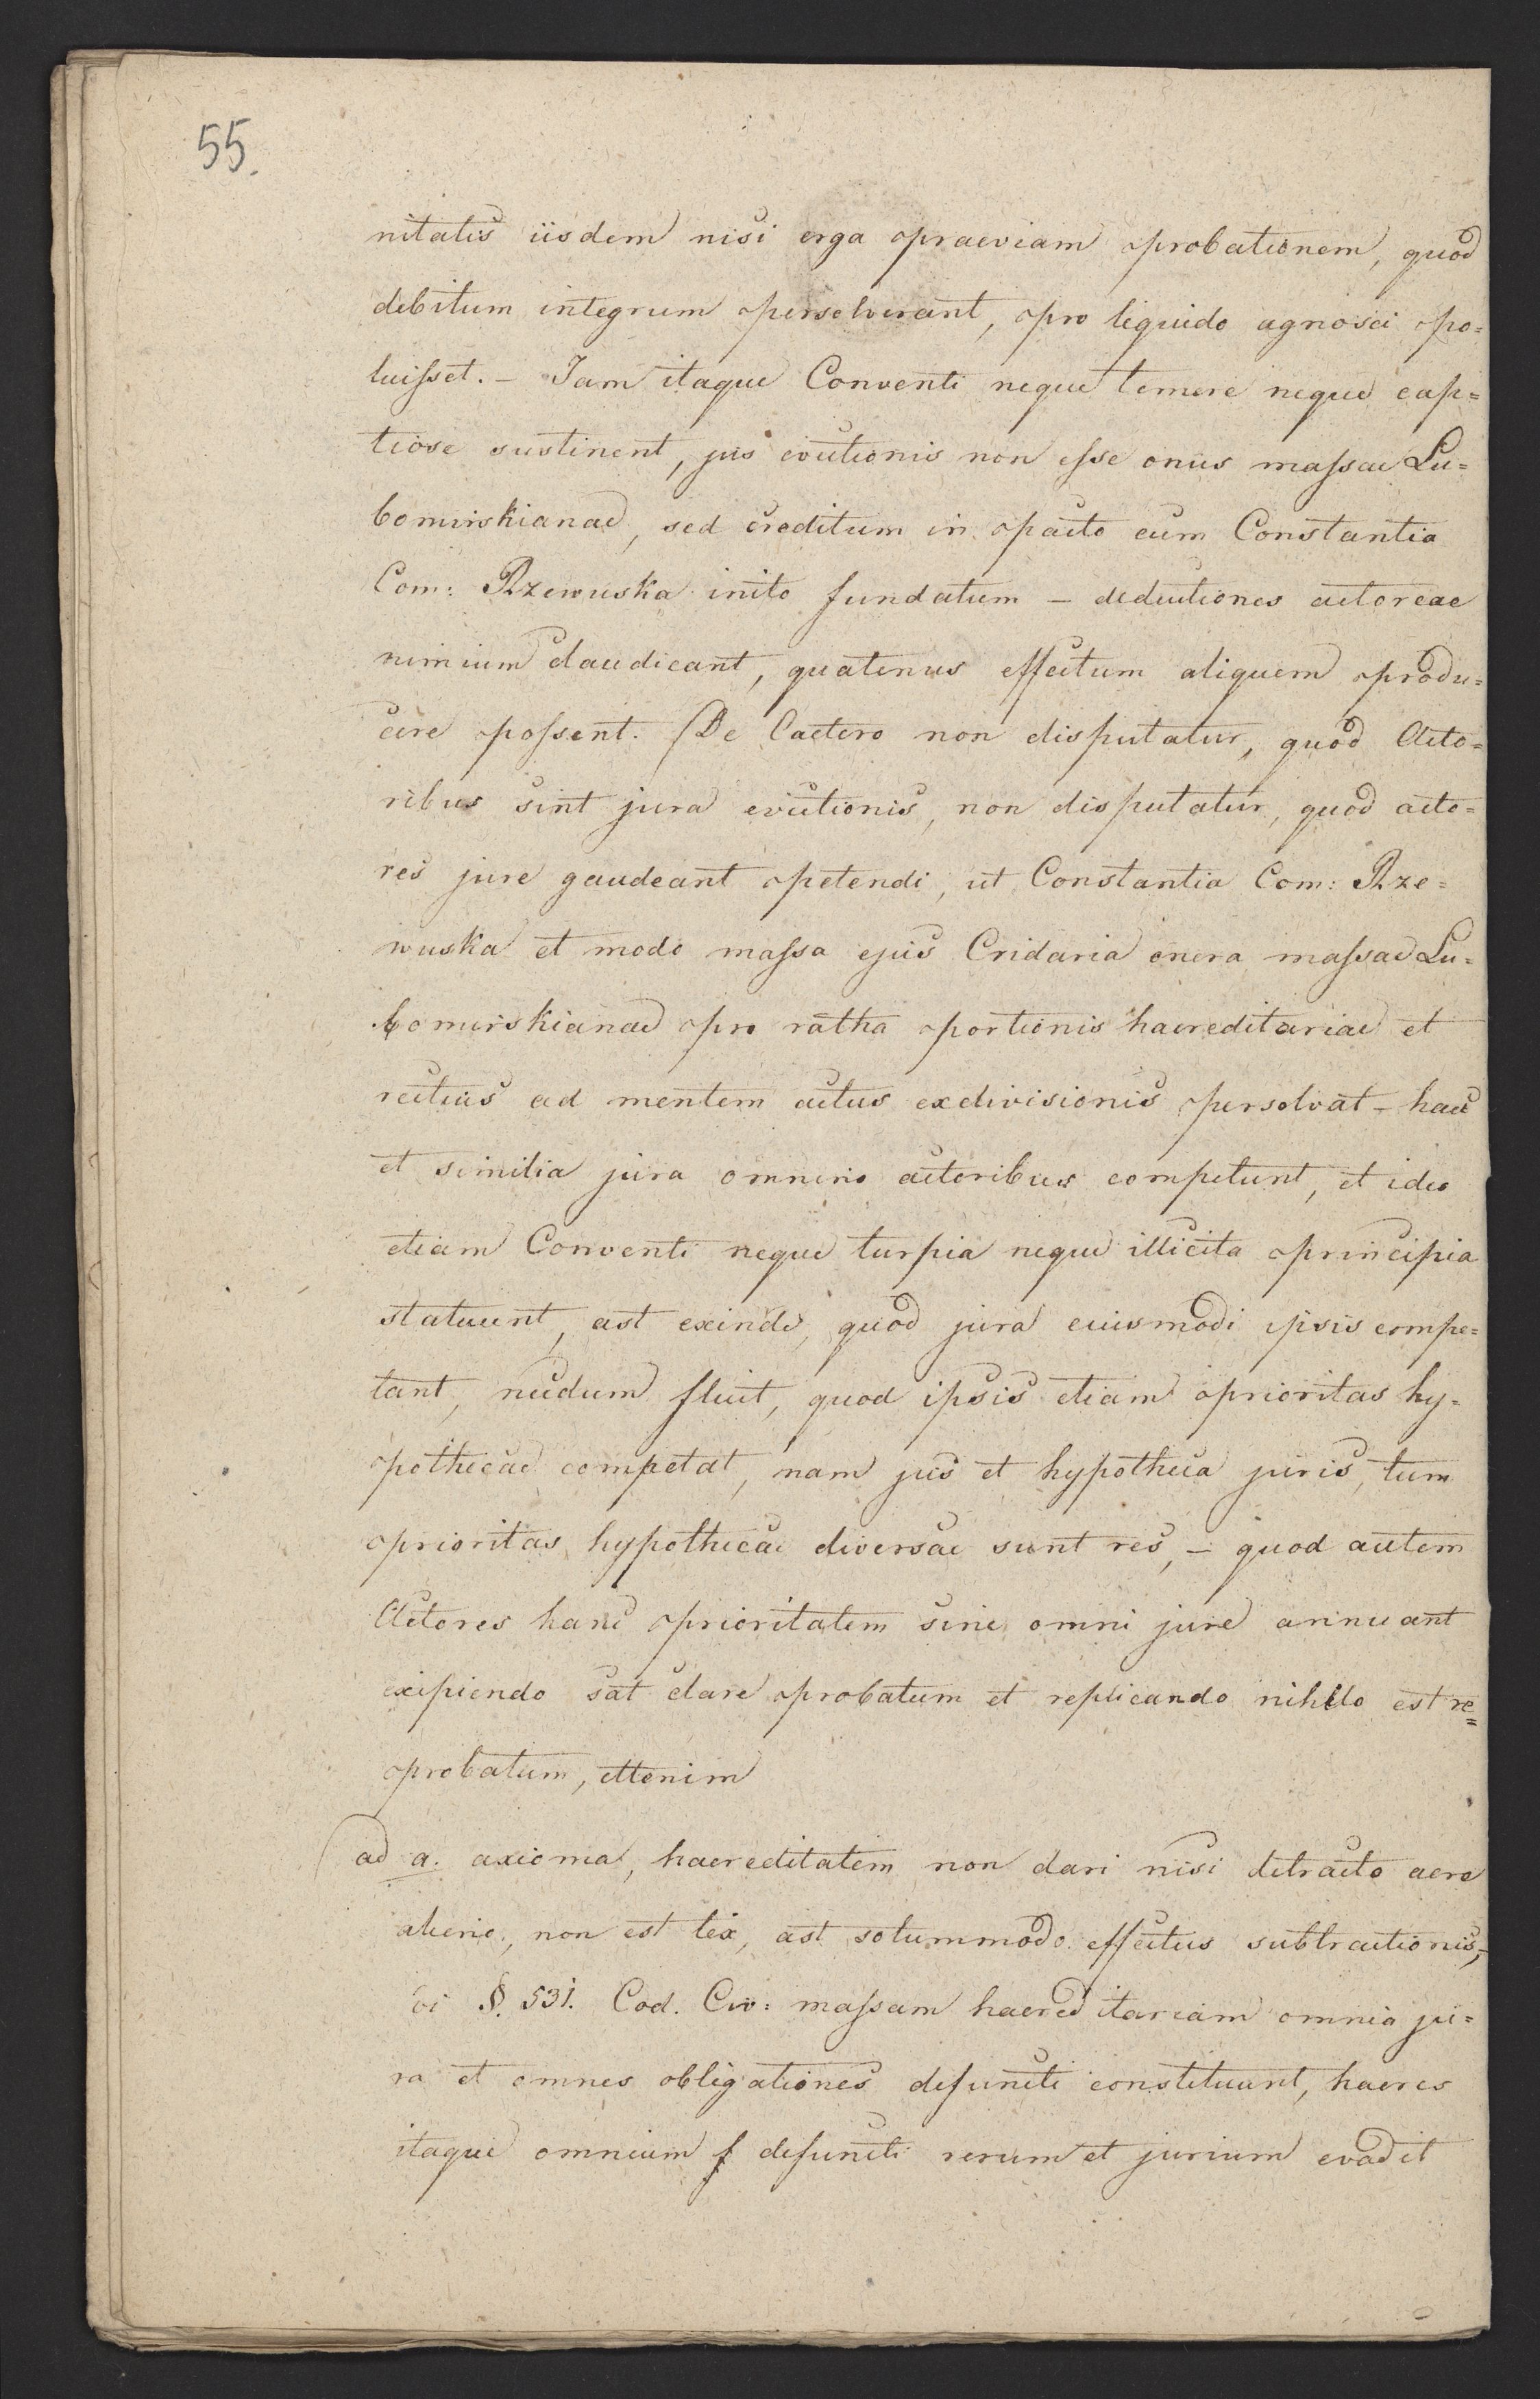 55.
nitatis iisdem nisi erga praeviam probationem, quod
debitum integrum persolverant, pro liquido agnosci po=
tuisset. – Jam itaque Conventi neque temere neque cap=
tiose sustinent, jus evictionis non esse onus massae Lu=
bomirskianae, sed creditum in pacto cum Constantia
Com: Rzewuska inito fundatum – deductiones actoreae
nimium claudicant, quatenus effectum aliquem produ=
cere possent. De Caetero non disputatur, quod Acto=
ribus sint jura evictionis, non disputatur, quod acto=
res jure gaudeant petendi, ut Constantia Com: Rze=
wuska et modo massa ejus Cridaria onera massae Lu=
bomirskianae pro ratha portionis haereditariae et
rectius ad mentem actus exdivisionis persolvat – haec
et similia jura omnino actoribus competunt, et ideo
etiam Conventi neque turpia neque illicita principia
statuunt, ast exinde, quod jura eiusmodi ipsis compe=
tant, necdum fluit, quod ipsis etiam prioritas hy=
pothecae competat, nam jus et hypotheca juris, tum
prioritas hypothecae diversae sunt res, – quod autem
Actores hanc prioritatem sine omni jure annuant
excipiendo sat clare probatum et replicando nihilo est re=
probatum, ettenim
ad a. axioma, haereditatem non dari nisi detracto aere
alieno, non est lex, ast solummodo effectus subtractionis, –
vi §. 531. Cod. Civ: massam haereditariam omnia ju=
ra et omnes obligationes defuncti constituunt, haeres
itaque omnium f defuncti rerum et jurium evadit